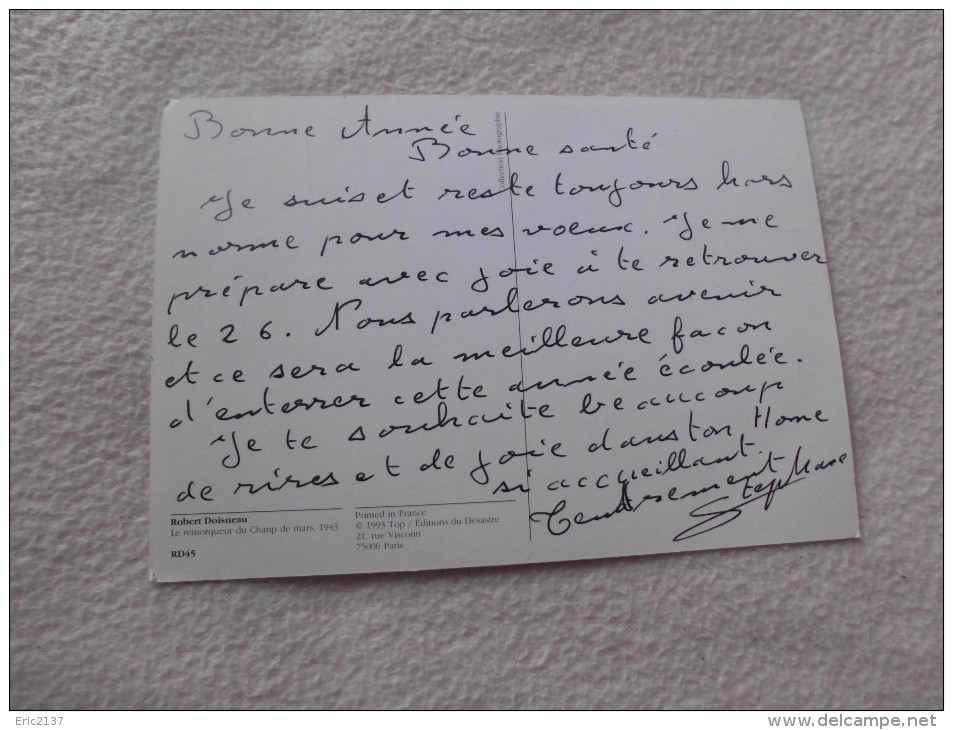 Bonne Année
Bonne santé
Je suis et reste toujours hors
norme pour mes voeux. Je me
prépare avec joie à te retrouver
le 26. Nous parlerons avenir
et ce sera la meilleure facon
d'enterrer cette année écoulée.
Je te souhaite beaucoup
de rires et de joie dans ton Home
si accueillant.
Tendrement
Stephane
Collection Photographie
Robert Doisneau
Le remorqueur du Champ de mars, 1943
RD45
Printed in France
© 1993 Top / Éditions du Désastre
21, rue Visconti
75006 Paris
Eric2137
http://www.delcampe.net